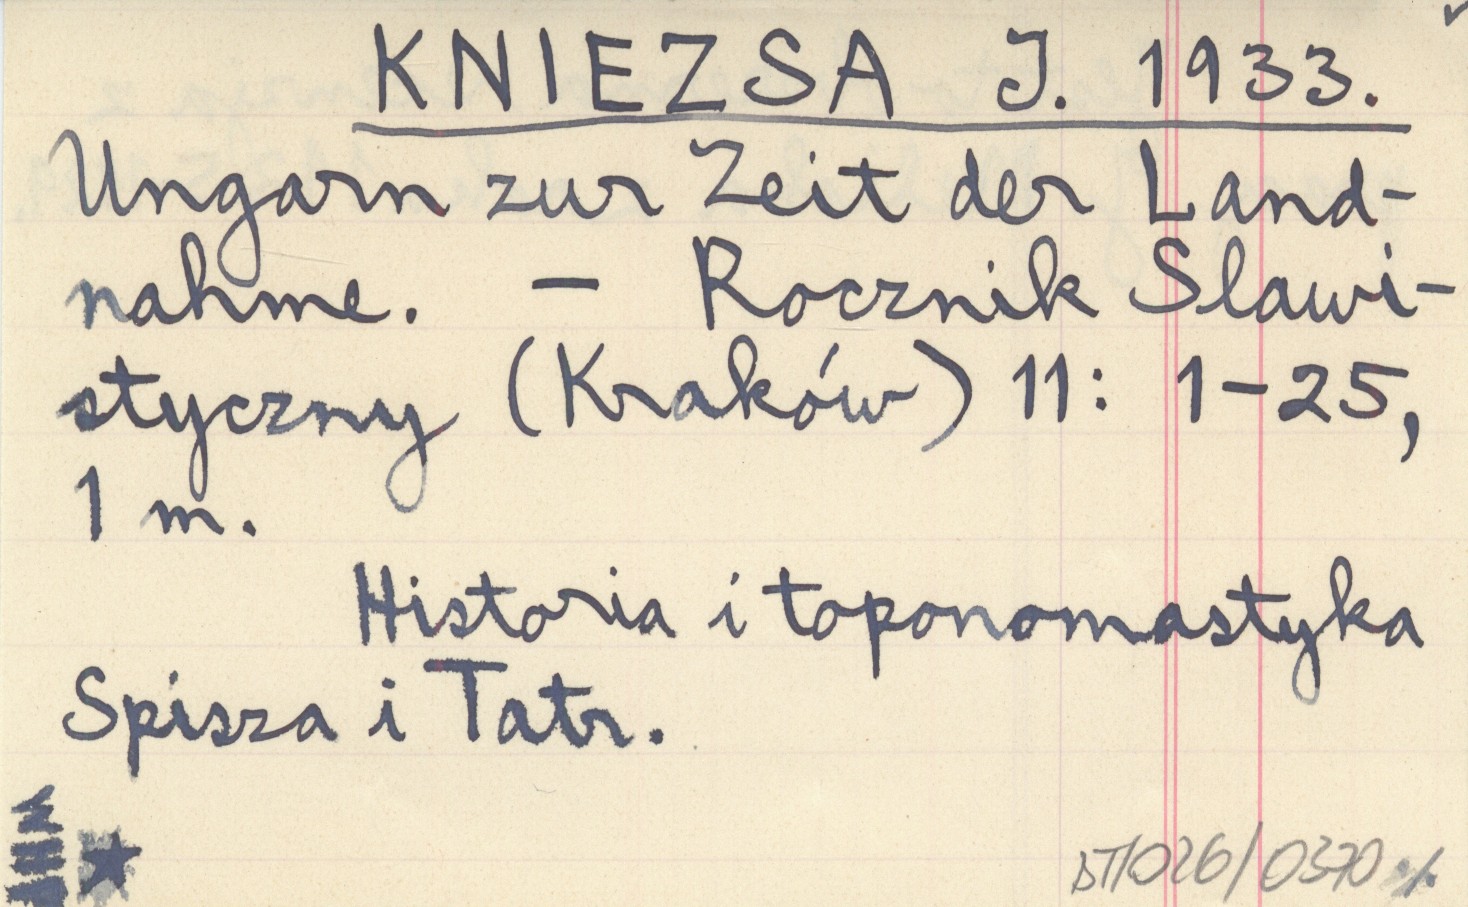 KNIEZSA J. 1933.
Ungarn zur Zeit der Land-
nahme. – Rocznik Slawi-
styczny (Kraków) 11: 1–25,
1 m.
Historia i toponomastyka
Spisza i Tatr.
BT/026/0370